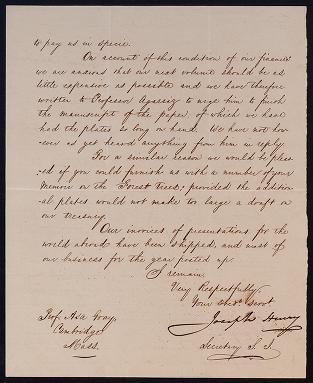 to pay us in specie.
On account of this condition of our finances
we are anxious that our next volume should be as
little expensive as possible and we have therefore
written to Professor Agassiz to urge him to finish
the manuscript of the paper, of which we have
had the plates so long on hand. We have not how-
-ever as yet heard anything from him in reply.
For a similar reason we would be pleas-
-ed if you could furnish us with a number of your
Memoir on the Forest trees, provided the addition-
-al plates would not make too large a draft on
our treasury.
Our invoices of presentations for the
world abroad have been shipped, and most of
our business for the year posted up.
I remain
Very Respectfully,
Your obdt. servt
Joseph Henry
Secretary S. I.
Prof Asa Gray,
Cambridge
Mass.